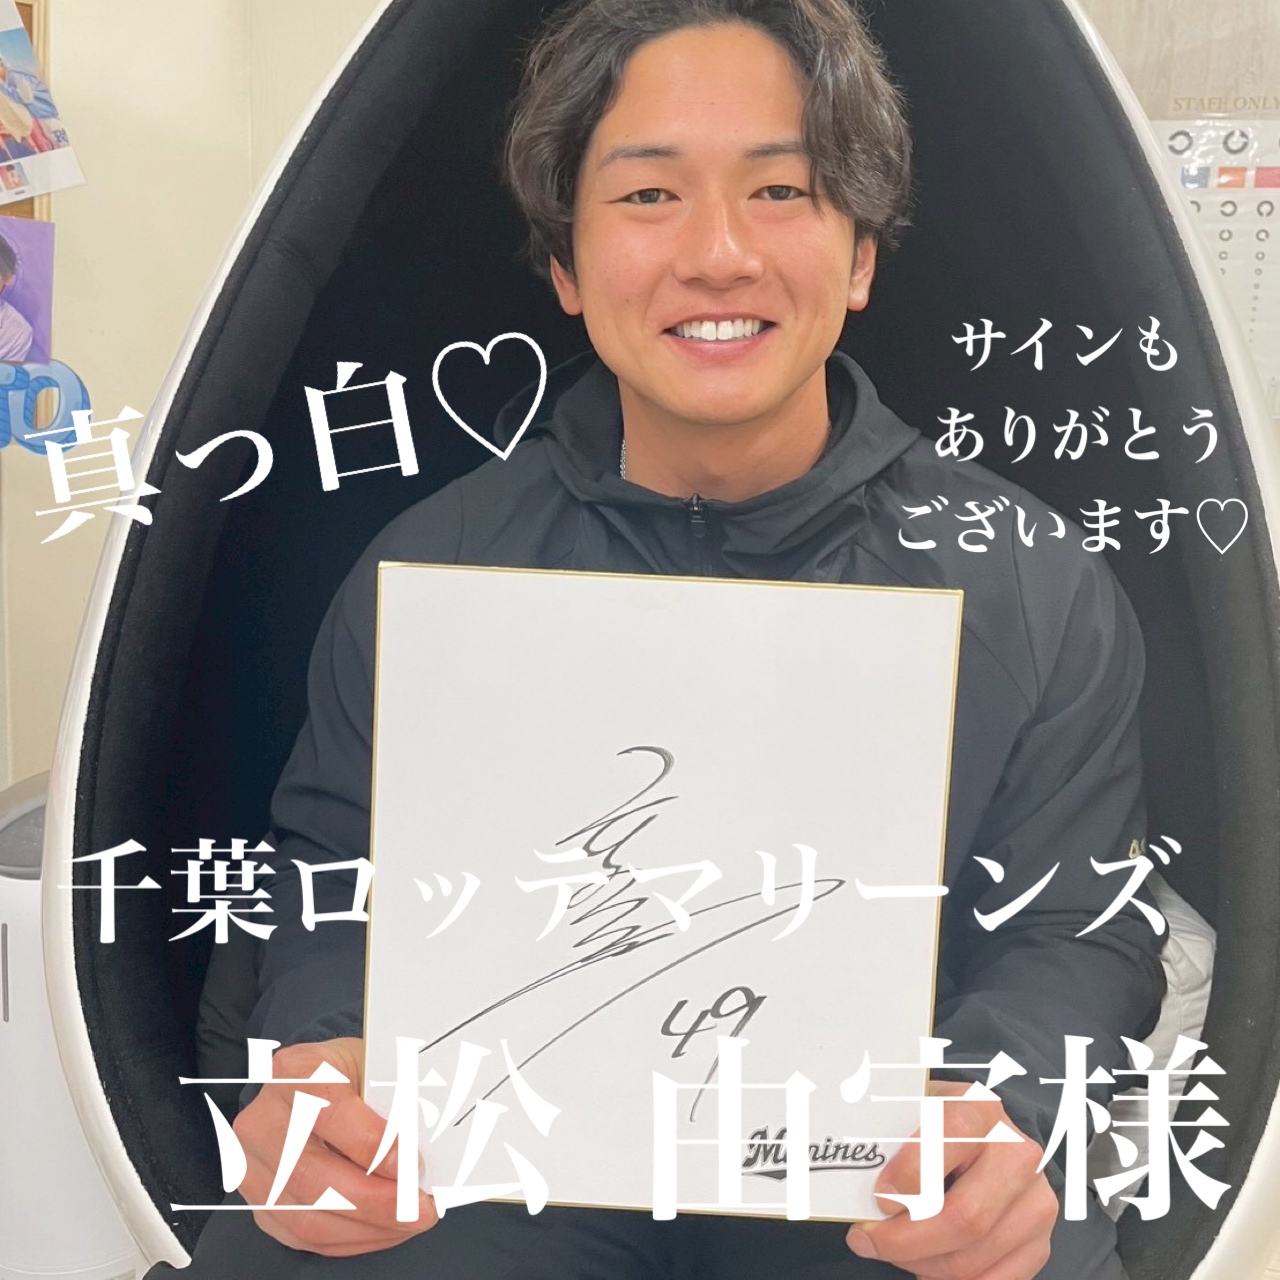 STAFF ONLY
真っ白♡
サインも
ありがとう
ございます♡
千葉ロッテマリーンズ
49
立松 由宇様
Marines